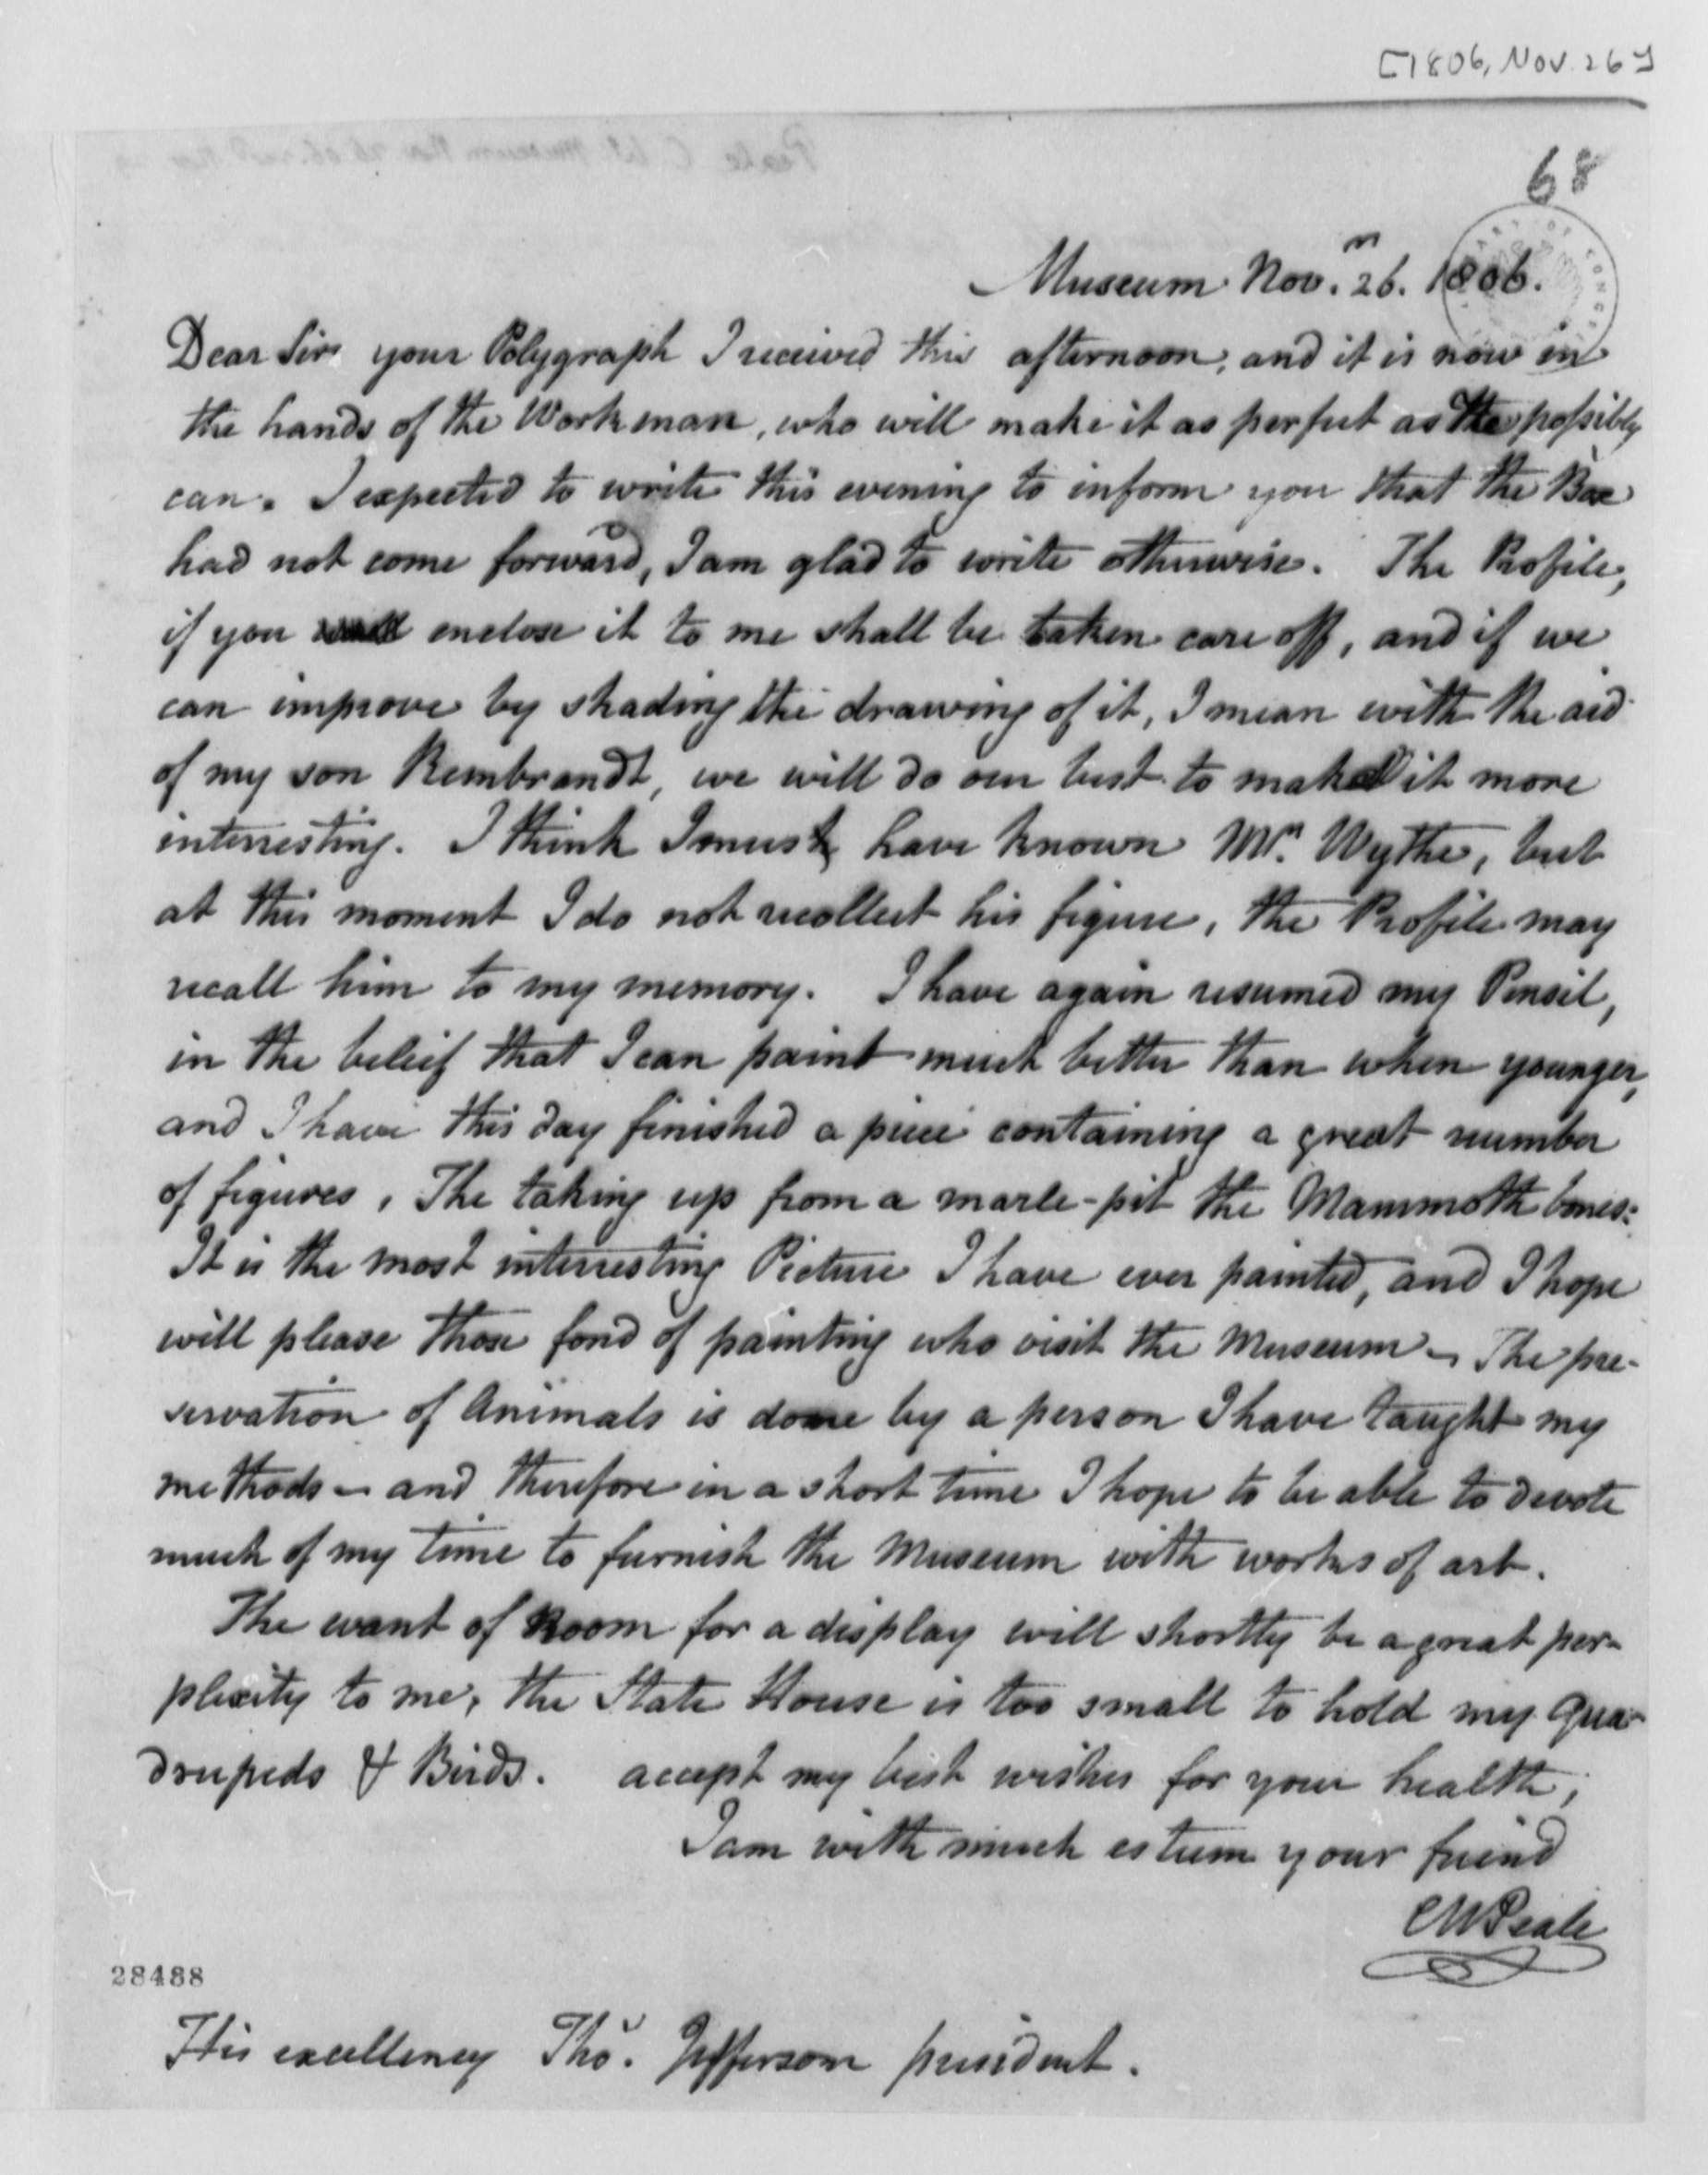 [1806, Nov. 26]
68
Museum Nov.m 26. 1806.
Dear Sir your Polygraph I received this afternoon, and it is now in
the hands of the Workman, who will make it as perfect as he possibly
can. I expected to write this evening to inform you that the Box
had not come forward, I am glad to write otherwise. The Profile,
if you will enclose it to me shall be taken care off, and if we
can improve by shading the drawing of it, I mean with the aid
of my son Rembrandt, we will do our best to make it more
interresting. I think I must have known Mr. Wythe, but
at this moment I do not recollect his figure, the Profile may
recall him to my memory. I have again resumed my Pensil,
in the beleif that I can paint much better than when younger,
and I have this day finished a piece containing a great number
of figures, The taking up from a marle-pit the Mammoth bones:
It is the most interresting Picture I have ever painted, and I hope
will please those fond of painting who visit the Museum - The pre-
servation of Animals is done by a person I have taught my
methods - and therefore in a short time I hope to be able to devote
much of my time to furnish the Museum with works of art.
The want of Room for a display will shortly be a great per-
plexity to me, the State House is too small to hold my Qua-
drupeds & Birds. accept my best wishes for your health,
I am with much esteem your friend
CWPeale
28488
His excellency Thos. Jefferson president.